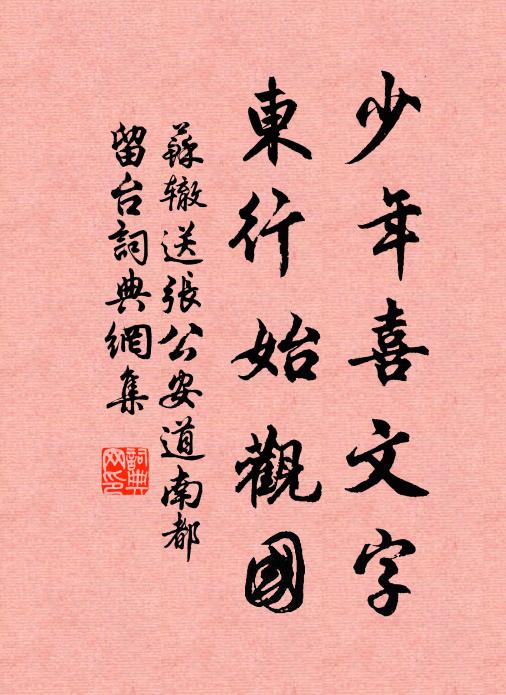 少年喜文字
東行始觀國
蘇辙送張公安道南都
留台詞典網集
詞典
网印